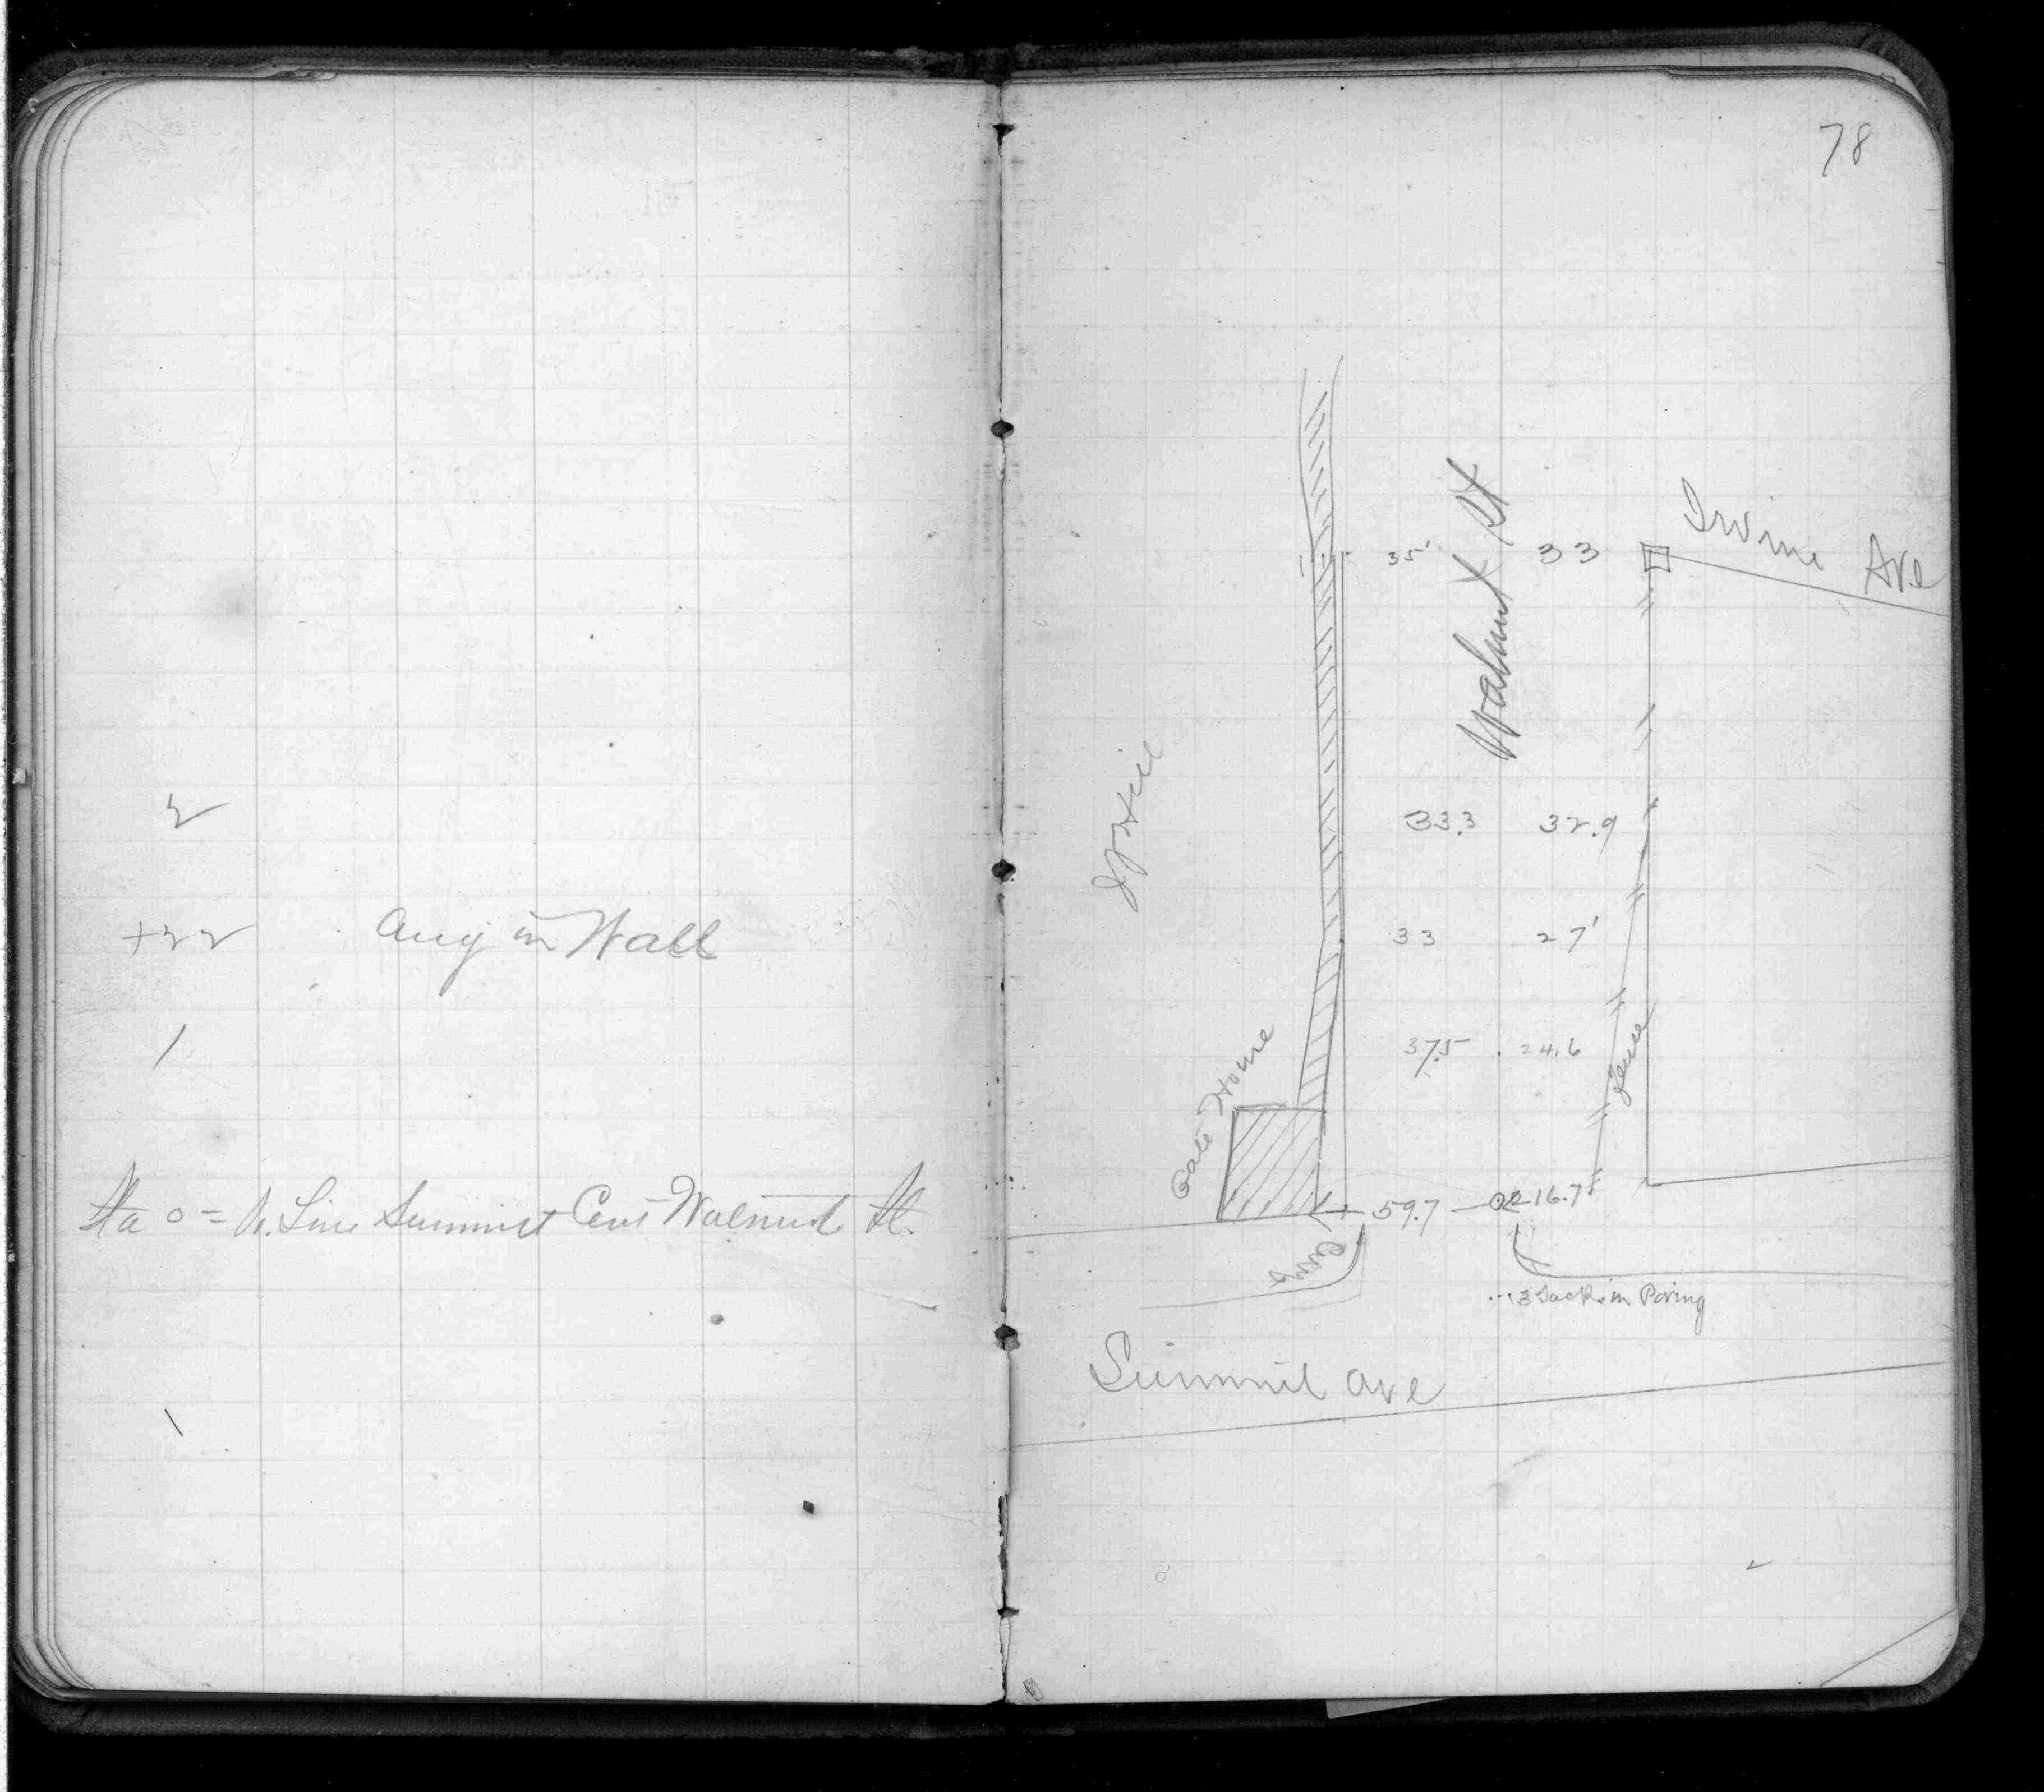 2
+22 Ang in Wall
1
Sta 0 = N. Line Summit Cent Walnut St.
78
Irvine Ave
35' 33
Walnut St
33.3 32.9
33 27'
37.5 24.6
Fence
Gate House
59.7 16.7
Curb
3 Tacks in Paving
Summit Ave